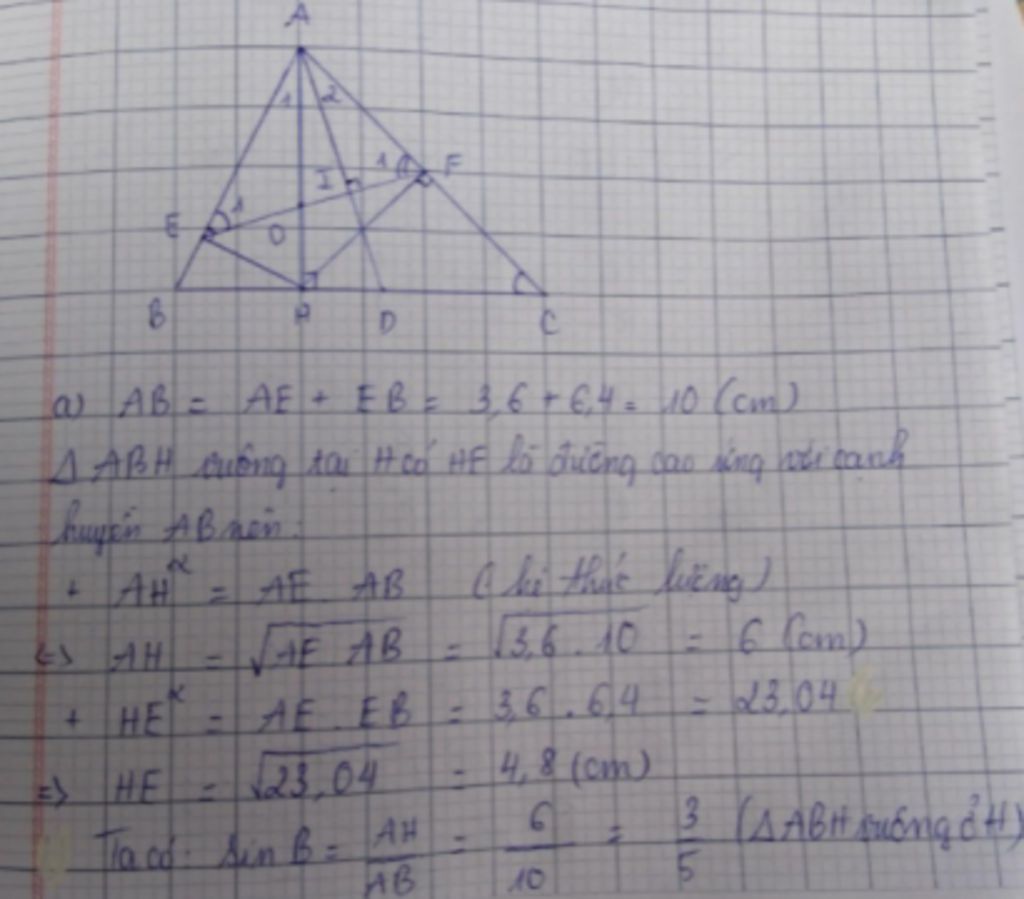 A
1 2
I 1 F
E 1
O
B H D C
a) AB = AE + EB = 3,6 + 6,4 = 10 (cm)
Δ ABH vuông tại H có HE là đường cao ứng với cạnh
huyền AB nên:
+ AH² = AE . AB (hệ thức lượng)
<=> AH = √AE . AB = √3,6 . 10 = 6 (cm)
+ HE² = AE . EB = 3,6 . 6,4 = 23,04
=> HE = √23,04 = 4,8 (cm)
Ta có: sin B = AH/AB = 6/10 = 3/5 (Δ ABH vuông ở H)